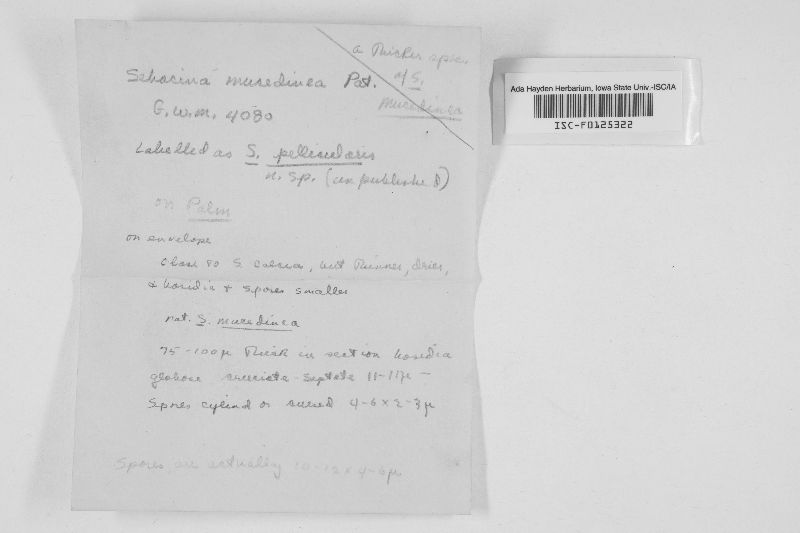 a thicker spec.
of S.
mucedinea
Sebacina mucedinea Pat.
G.W.M. 4080
Labelled as S. pellicularis
n. sp. (unpublished)
on Palm
on envelope
Close to S. calcea, but thinner, drier,
& basidia & spores smaller
not. S. mucedinea
75-100μ thick in section basidia
globose cruciate-septate 11-
Spores cylind or curved 4-6 x 2-3 μ
Spores, are actually 10-12 x 4-6μ
Ada Hayden Herbarium, Iowa State Univ.-ISC/IA
ISC-F0125322